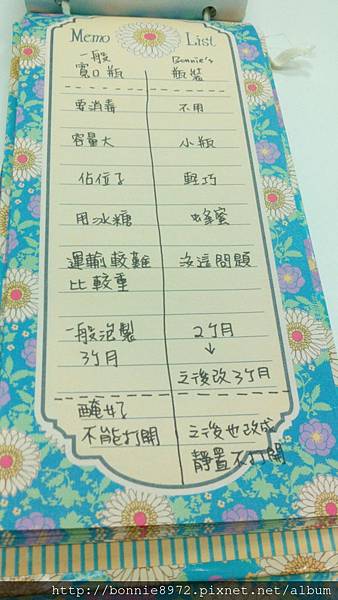 Memo List
一般 Bonnie's
寬口瓶 瓶裝
要消毒 不用
容量大 小瓶
佔位子 輕巧
用冰糖 蜂蜜
運輸較難 沒這問題
比較重
一般泡製 2個月
3個月 ↓
之後改3個月
醃好了
不能打開 之後也改成
靜置不打開
http://bonnie8972.pixnet.net/album